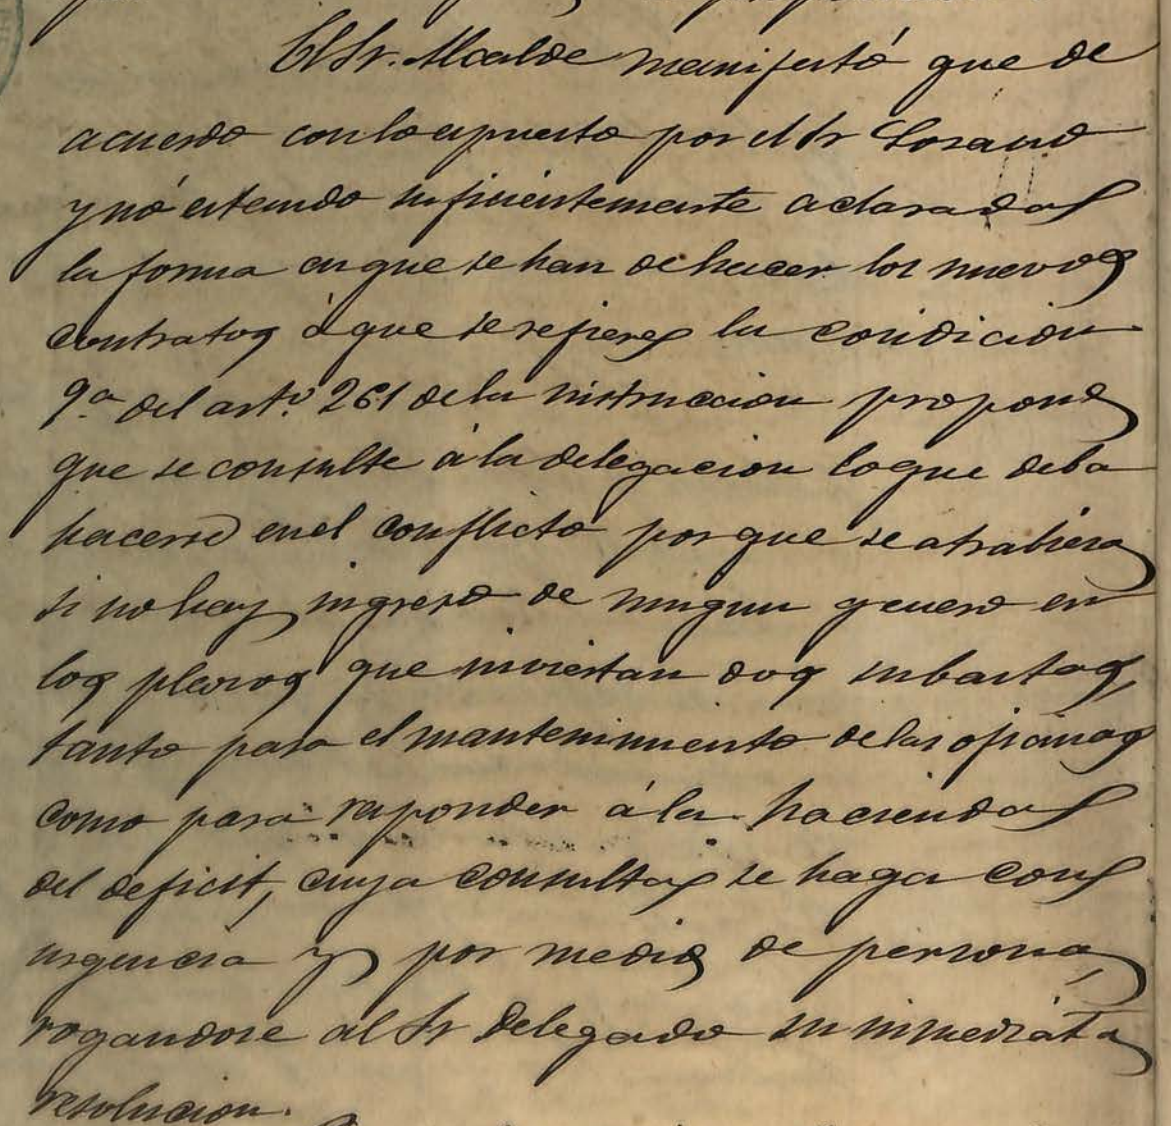 El Sr. Alcalde manifestó que de
acuerdo con lo espuesto por el Sr Losano
y nó estando suficientemente aclarada
la forma en que se han de hacer los nuevos
contratos á que se refiere la condicion
9ª del artº 261 de la instruccion propone
que se consulte á la delegacion lo que deba
hacerse en el conflicto por que se atrabiesa
si no hay ingreso de ningun genero en
los plazos que inviertan dos subastas,
tanto para el mantenimiento de las oficinas
como para responder á la hacienda
del deficit, cuya consulta se haga con
urgencia y por medio de persona,
rogandose al Sr Delegado su inmediata
resolucion.